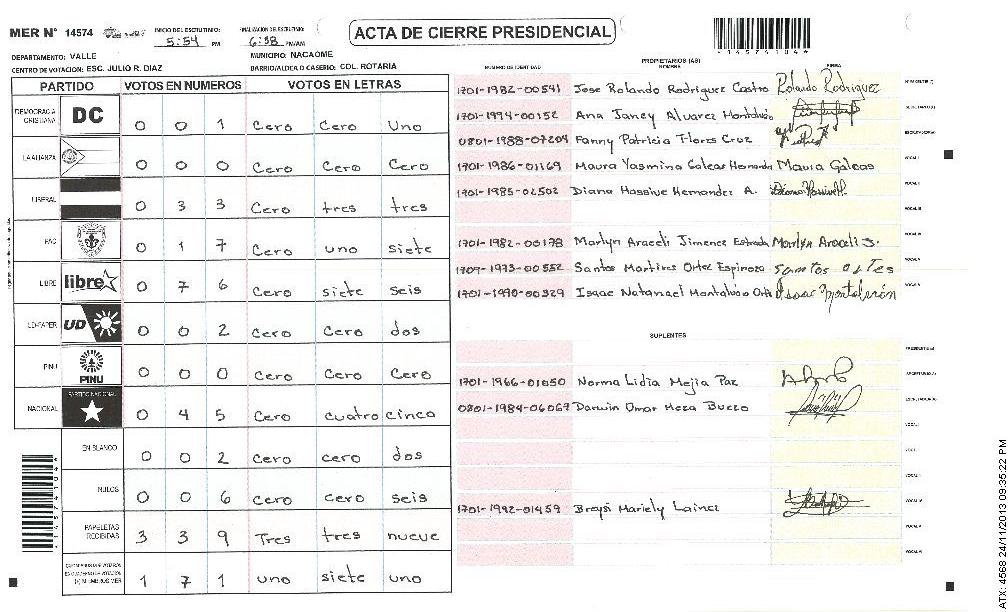 MER N° 14574
INICIO DEL ESCRUTINIO: 5:54 PM
FINALIZACION DEL ESCRUTINIO: 6:38 PM/AM
ACTA DE CIERRE PRESIDENCIAL
145741044
DEPARTAMENTO: VALLE
MUNICIPIO: NACAOME
CENTRO DE VOTACION: ESC. JULIO R. DIAZ
BARRIO/ALDEA O CASERIO: COL. ROTARIA
PARTIDO VOTOS EN NUMEROS VOTOS EN LETRAS
DEMOCRACIA CRISTIANA DC 0 0 1 Cero Cero Uno
LA ALIANZA 0 0 0 Cero Cero Cero
LIBERAL 0 3 3 Cero tres tres
PAC 0 1 7 Cero uno siete
LIBRE libre 0 7 6 Cero siete seis
UD-FAPER UD 0 0 2 Cero Cero dos
PINU PINU 0 0 0 Cero Cero Cero
NACIONAL PARTIDO NACIONAL 0 4 5 Cero cuatro cinco
EN BLANCO 0 0 2 Cero cero dos
NULOS 0 0 6 Cero cero seis
PAPELETAS RECIBIDAS 3 3 9 Tres tres nueve
1 7 1 uno siete uno
PROPIETARIOS (AS)
NUMERO DE IDENTIDAD NOMBRE FIRMA
1701-1982-00541 Jose Rolando Rodriguez Castro Rolando Rodriguez
1701-1994-00152 Ana Janey Alvarez Montalván
0801-1988-07204 Fanny Patricia Flores Cruz
1701-1986-01169 Maura Yasmina Galeas Hernandz Maura Galeas
1701-1985-02502 Diana Hassive Hernandez A.
1701-1982-00178 Marlyn Araceli Jimenez Estrada Marlyn Araceli J.
1709-1973-00552 Santos Martires Ortez Espinoza Santos ortes
1701-1990-00329 Isaac Natanael Montalván Orti Isaac Montalván
SUPLENTES
1701-1966-01050 Norma Lidia Mejia Paz
0801-1984-06069 Darwin Omar Meza Buezo
1701-1992-01459 Breysi Mariely Lainez
ATX: 4568 24/11/2013 09:35:22 PM